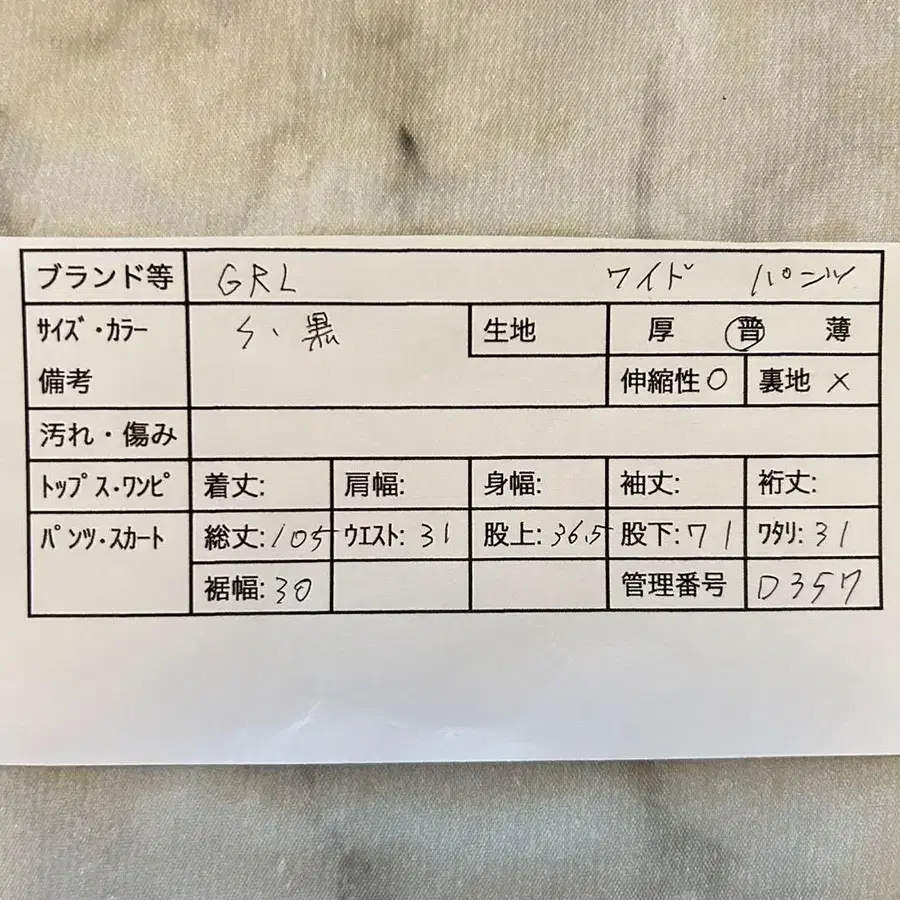 ブランド等 GRL ワイド パンツ
サイズ・カラー S・黒 生地 厚 普 薄
備考 伸縮性 ○ 裏地 ×
汚れ・傷み
トップス・ワンピ 着丈: 肩幅: 身幅: 袖丈: 裄丈:
パンツ・スカート 総丈:105 ウエスト:31 股上:36.5 股下:71 ワタリ:31
裾幅:30 管理番号 D357